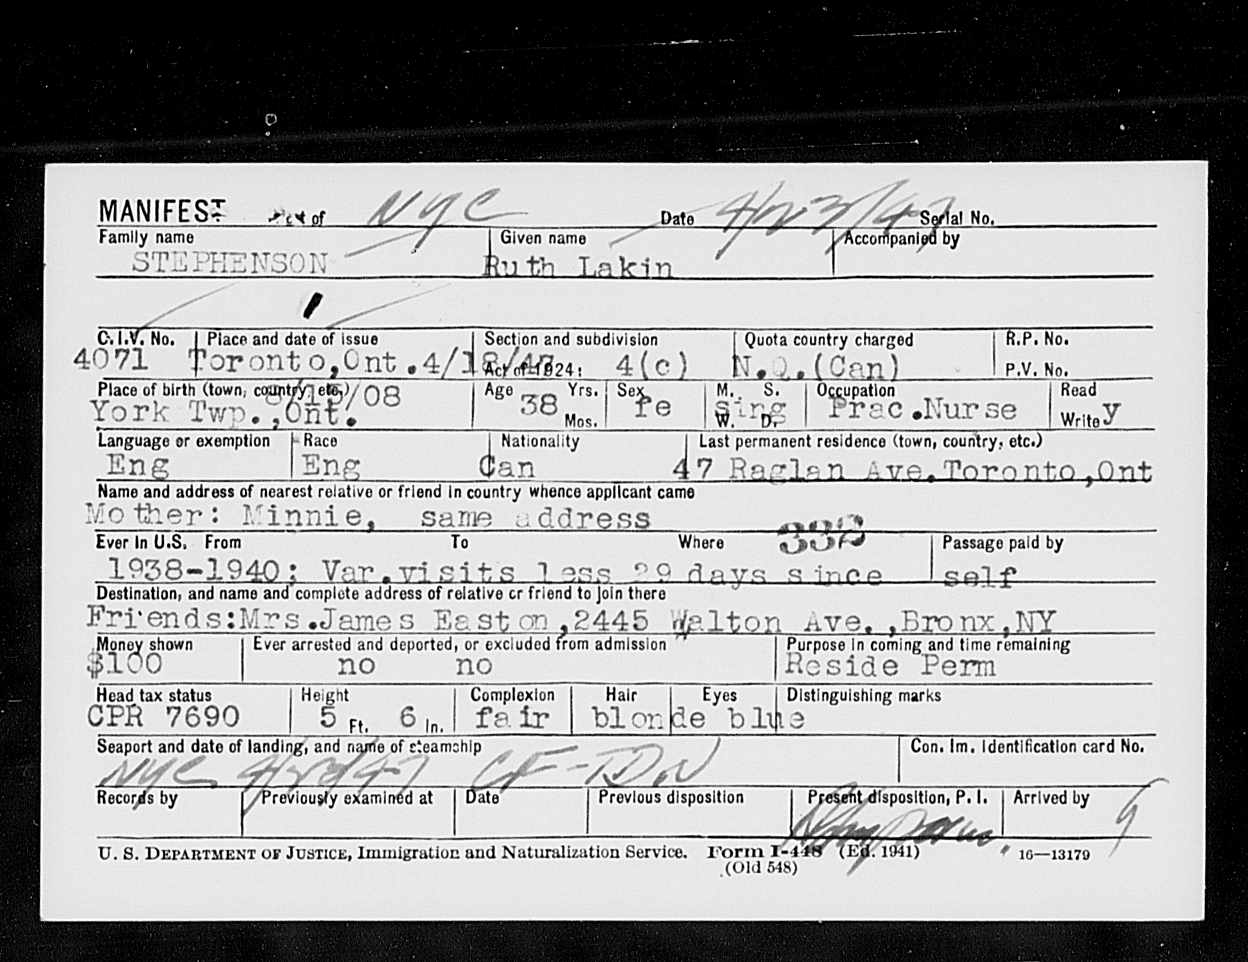 MANIFEST of NYC Date 4/23/47 Serial No.
Family name Given name Accompanied by
STEPHENSON Ruth Lakin
C. I. V. No. Place and date of issue Section and subdivision Quota country charged R. P. No.
4071 Toronto,Ont.4/18/47 Act of 1924: 4(c) N.Q.(Can) P. V. No.
Place of birth (town, country, etc.) /08 Age 38 Yrs. Mos. Sex fe M. S. W. D. sing Occupation Read
York Twp.,Ont. Prac.Nurse Write y
Language or exemption Race Nationality Last permanent residence (town, country, etc.)
Eng Eng Can 47 Raglan Ave.Toronto,Ont
Name and address of nearest relative or friend in country whence applicant came
Mother: Minnie, same address
Ever in U.S. From To Where 332 Passage paid by
1938-1940; Var.visits less 29 days since self
Destination, and name and complete address of relative or friend to join there
Friends:Mrs.James Easton,2445 Walton Ave.,Bronx,NY
Money shown Ever arrested and deported, or excluded from admission Purpose in coming and time remaining
$100 no no Reside Perm
Head tax status Height Complexion Hair Eyes Distinguishing marks
CPR 7690 5 Ft. 6 In. fair blonde blue
Seaport and date of landing, and name of steamship Con. Im. Identification card No.
NYC 4/23/47
Records by Previously examined at Date Previous disposition Present disposition, P. I. Arrived by
U. S. DEPARTMENT OF JUSTICE, Immigration and Naturalization Service. Form I-448 (Ed. 1941) 16—13179
(Old 548)